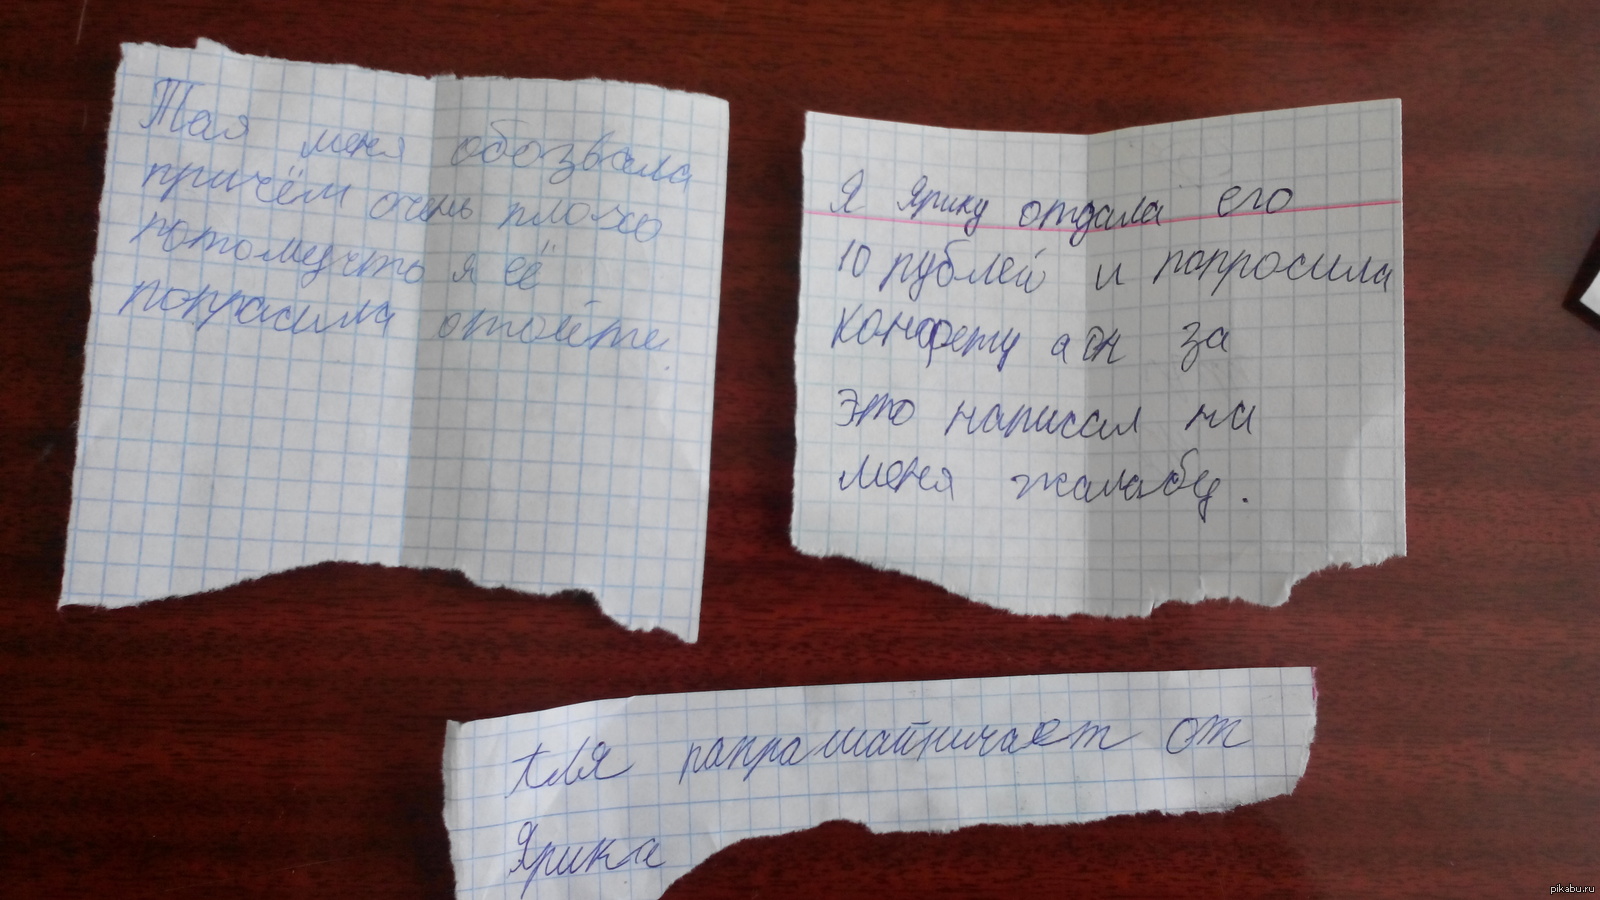 Тая меня обозвала
причём очень плохо
потомучто я её
попрасила отойти.
Я Ярику отдала его
10 рублей и попросила
конфету а он за
это написал на
меня жалабу.
папрашайничает от
Ярика
pikabu.ru